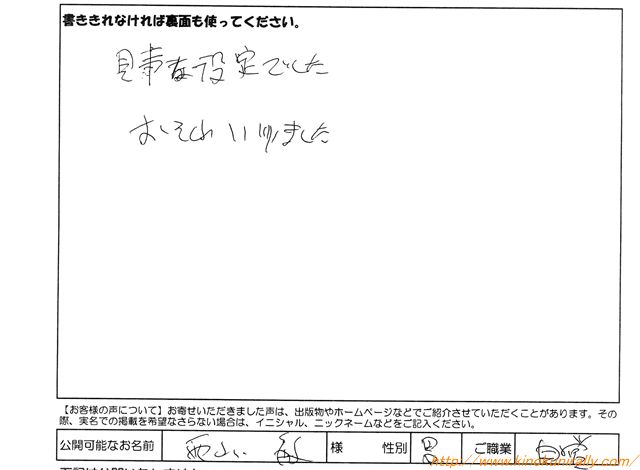 書ききれなければ裏面も使ってください。
見事な設定でした
おそれいりました
【お客様の声について】お寄せいただきました声は、出版物やホームページなどでご紹介させていただくことがあります。その
際、実名での掲載を希望なさらない場合は、イニシャル、ニックネームなどをご記入ください。
公開可能なお名前 西山 様 性別 男 ご職業 自営